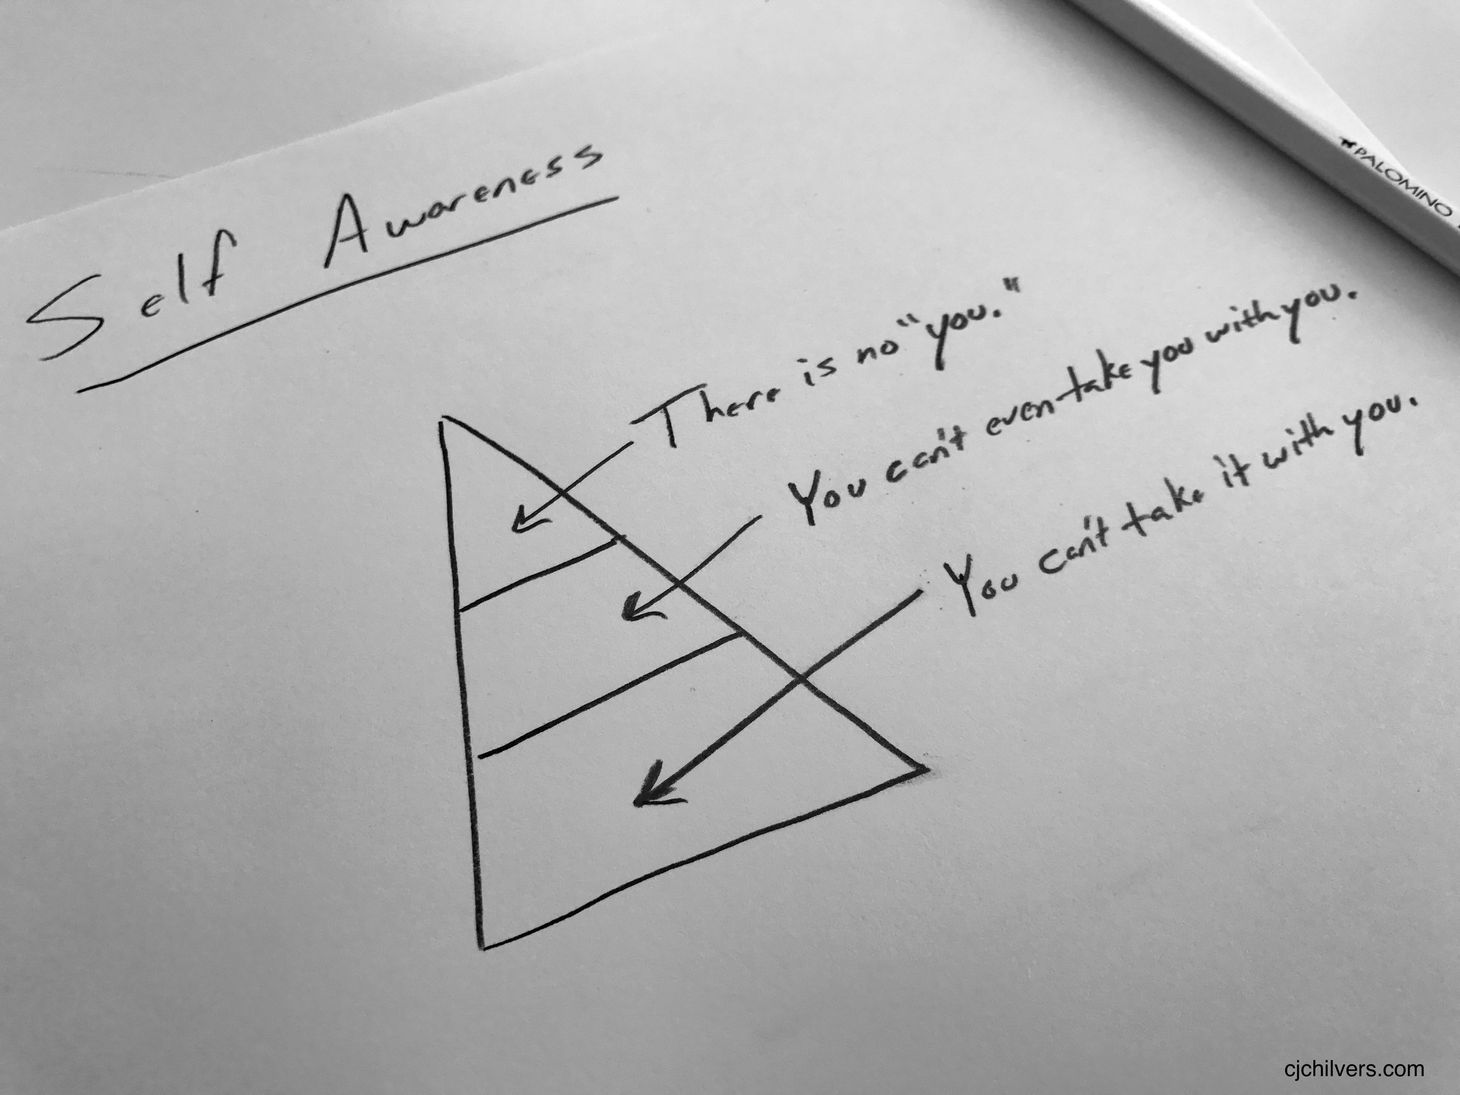 Self Awareness
There is no "you."
You can't even take you with you.
You can't take it with you.
PALOMINO
cjchilvers.com